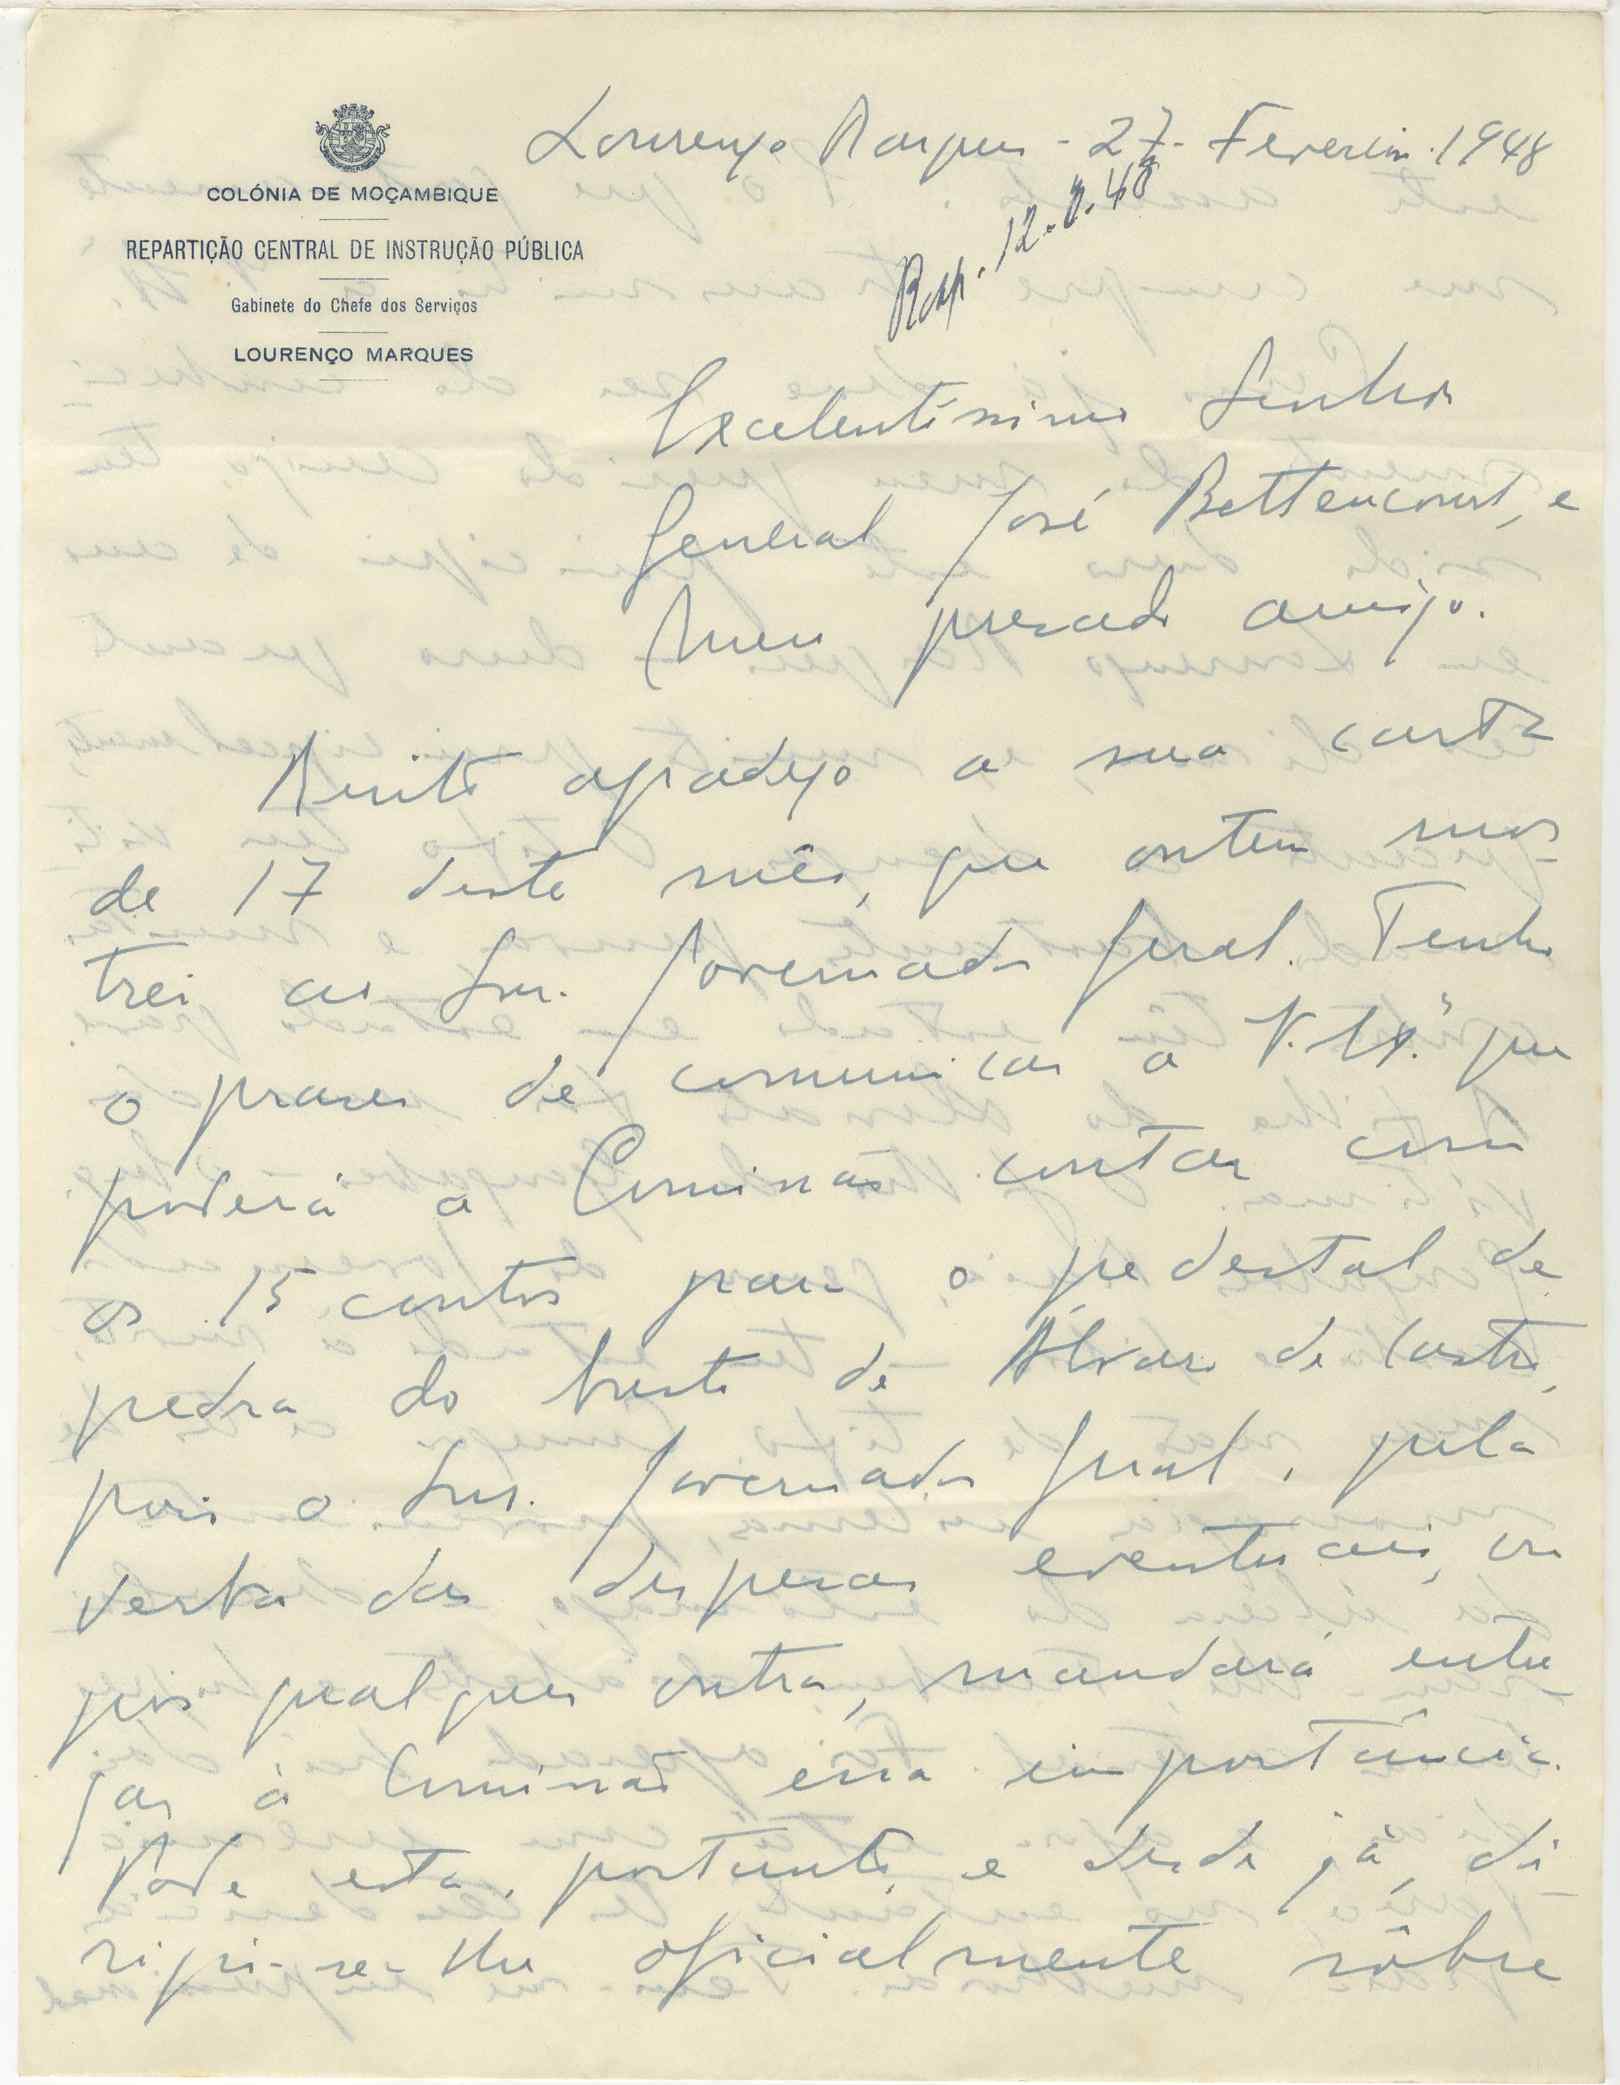 COLÓNIA DE MOÇAMBIQUE
REPARTIÇÃO CENTRAL DE INSTRUÇÃO PÚBLICA
Gabinete do Chefe dos Serviços
LOURENÇO MARQUES
Lourenço Marques - 27 - Fevereiro. 1948
Resp. 12-3-48
Excelentíssimo Senhor
General José Bettencourt, e
Meu prezado amigo.
Muito agradeço a sua carta
de 17 deste mês, que ontem mos-
trei ao Snr. Governador Geral. Tenho
o prazer de comunicar a V. Ex.ª que
poderá a Comissão contar com
os 15 contos para o pedestal de
pedra do busto de Álvaro de Castro,
pois o Snr. Governador Geral, pela
verba das despesas eventuais, ou
por qualquer outra, mandará entre-
gar à Comissão essa importância.
Pode esta, portanto, e desde já, di-
rigir-se-lhe oficialmente sôbre